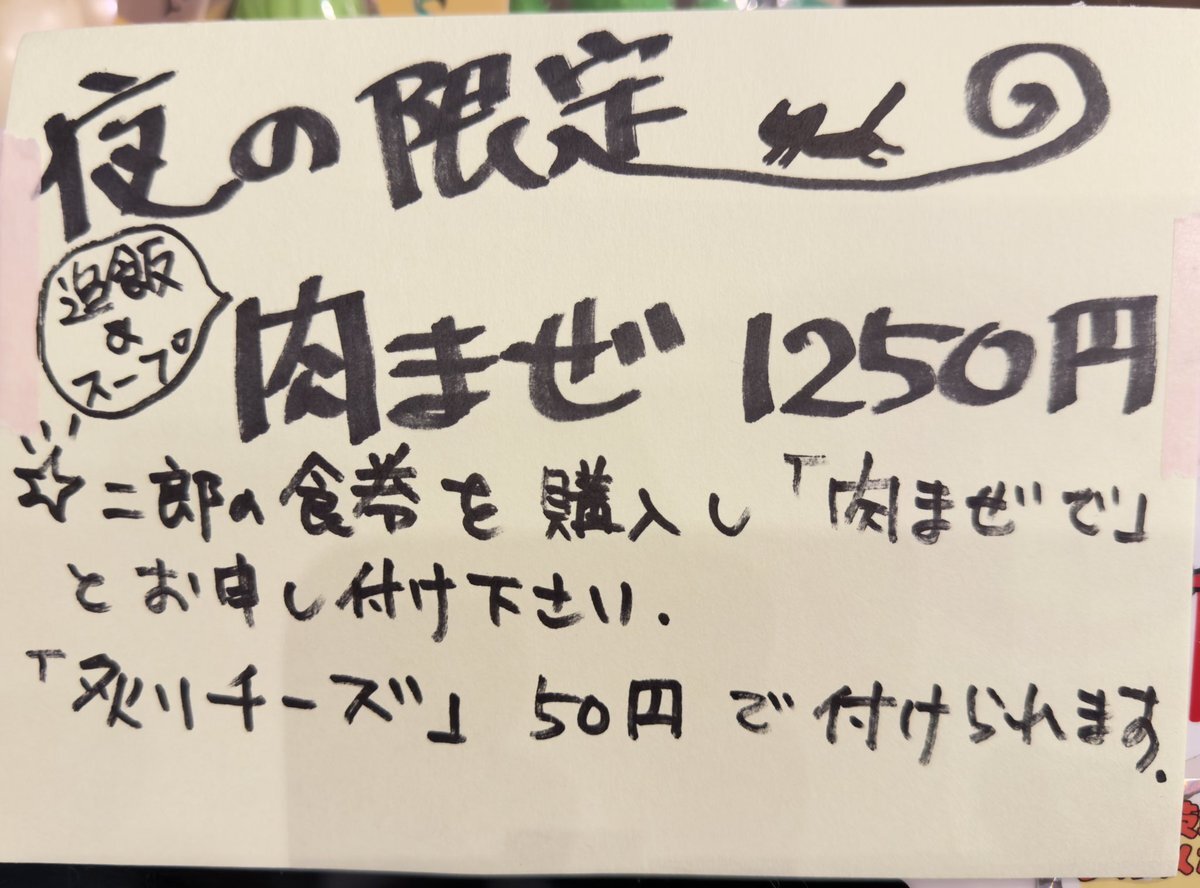 夜の限定
追飯
&
スープ
肉まぜ 1250円
☆二郎の食券を購入し「肉まぜで」
とお申し付け下さい.
「炙りチーズ」 50円で付けられます.